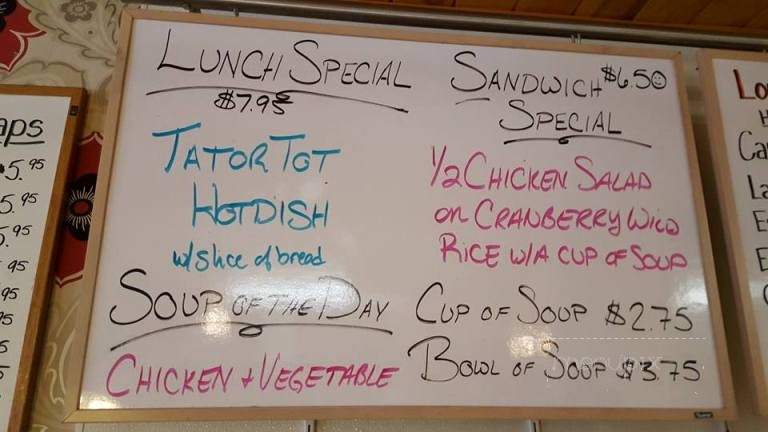 LUNCH SPECIAL
$7.95
TATOR TOT
HOTDISH
w/slice of bread
SOUP OF THE DAY
CHICKEN + VEGETABLE
SANDWICH $6.50
SPECIAL
1/2 CHICKEN SALAD
ON CRANBERRY WILD
RICE W/A CUP OF SOUP
CUP OF SOUP $2.75
BOWL OF SOUP $3.75
aps
5.95
5.95
.95
95
95
95
Lo
Ca
La
E
E